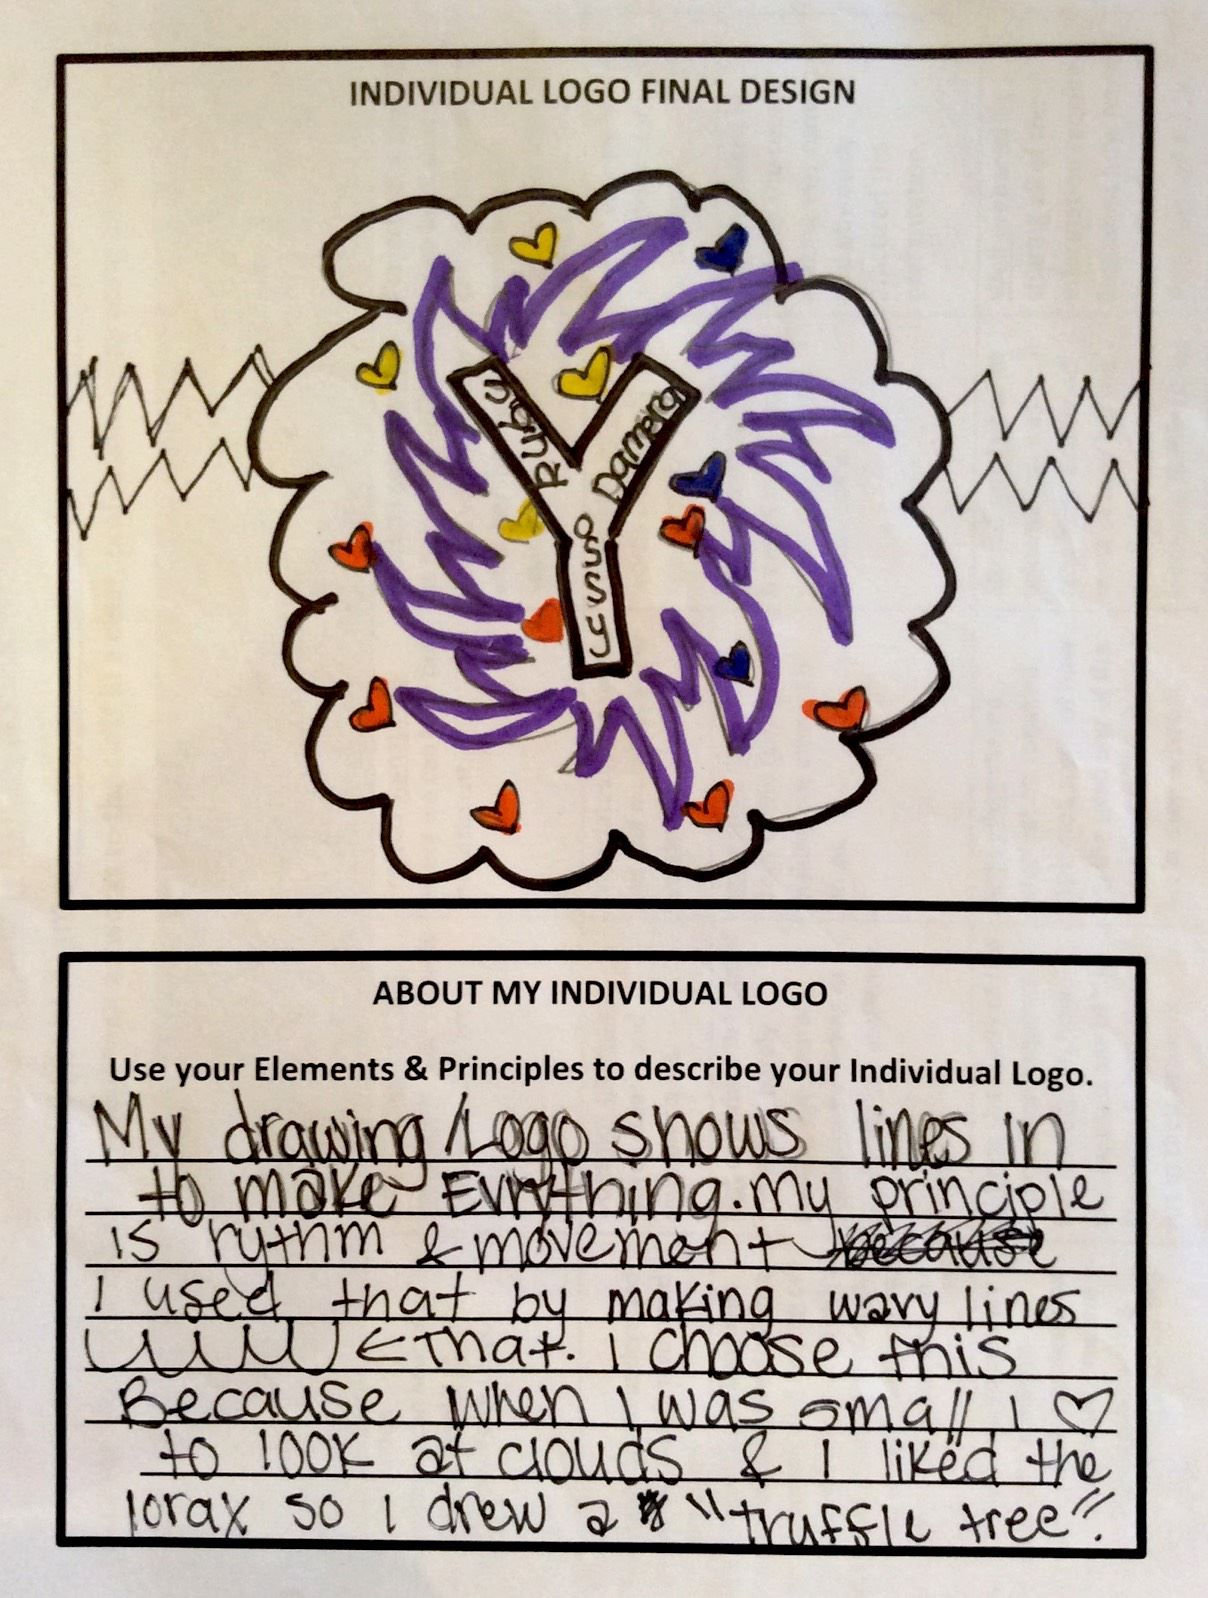 INDIVIDUAL LOGO FINAL DESIGN
Damera
ossy
ABOUT MY INDIVIDUAL LOGO
Use your Elements & Principles to describe your Individual Logo.
My drawing/Logo shows lines in
to make Evrything. my principle
is rythm & movement because
I used that by making wavy lines
← that. I choose this
Because when I was small I ♡
to look at clouds & I liked the
lorax so I drew a "truffle tree".